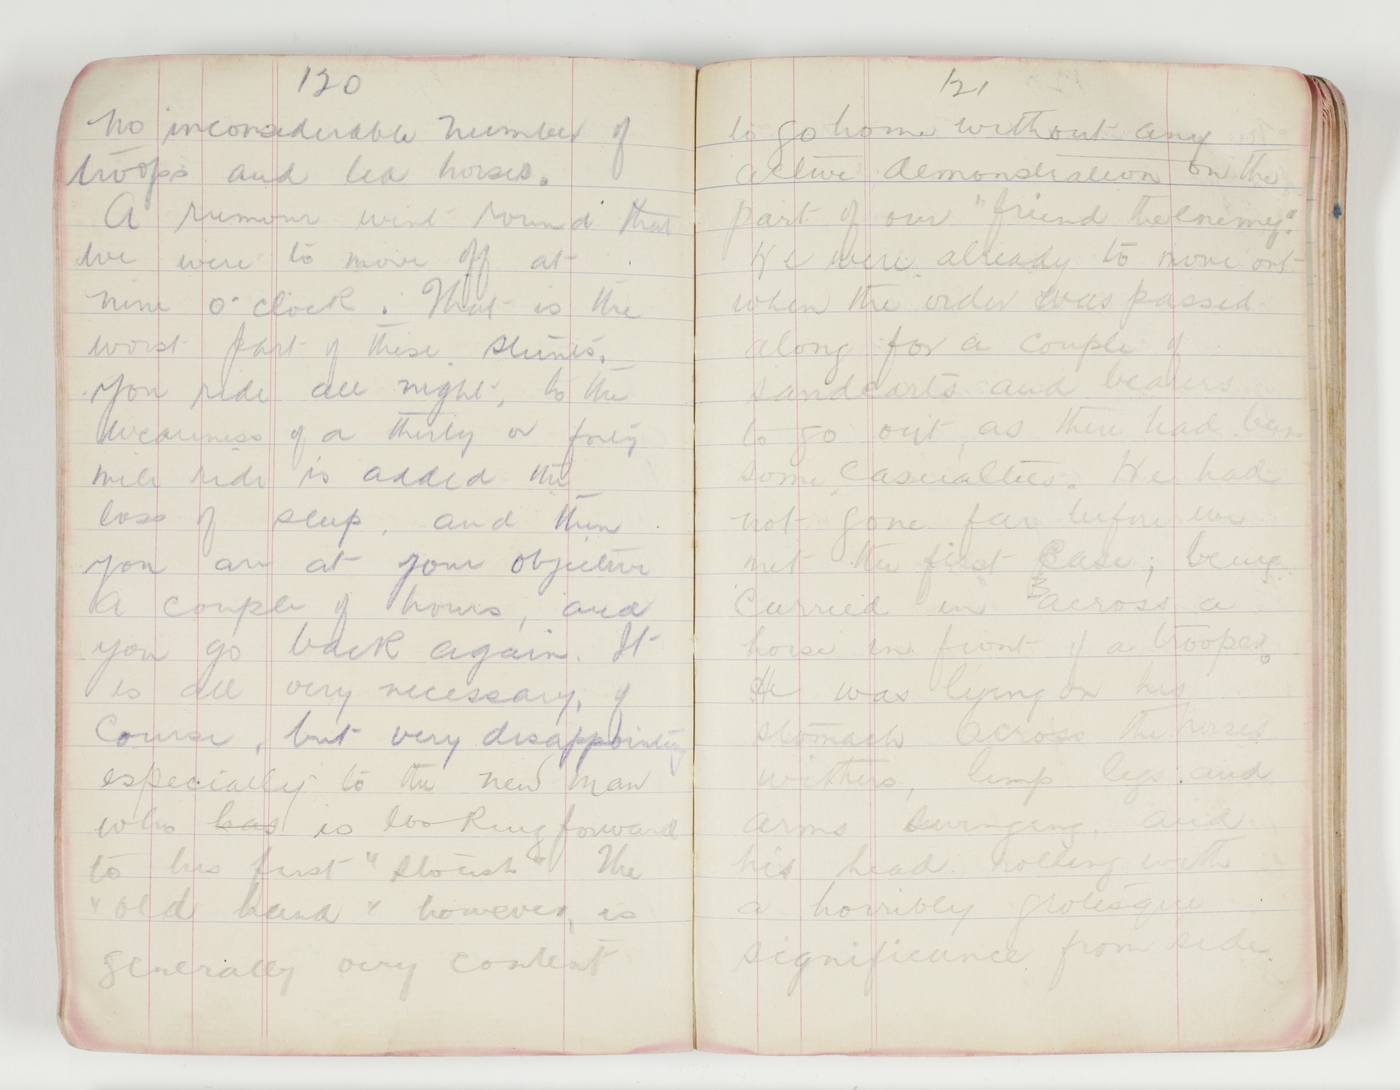 120
no inconsiderable number of
troops and led horses.
A rumour went round that
we were to move off at
nine o'clock. That is the
worst part of these stunts.
You ride all night, to the
weariness of a thirty or forty
mile ride is added the
loss of sleep, and then
you are at your objective
a couple of hours, and
you go back again. It
is all very necessary, of
course, but very disappointing
especially to the new man
who has is looking forward
to his first "stoush". The
"old hand" however, is
generally very content
121
to go home without any
active demonstration on the
part of our "friend the enemy".
We were already to move out
when the order was passed
along for a couple of
sandcarts and bearers
to go out, as there had been
some casualties. We had
not gone far before we
met the first case; being
carried in across a
horse in front of a trooper.
He was lying on his
stomach across the horses
withers, limp legs and
arms swinging, and
his head rolling with
a horribly grotesque
significance from side